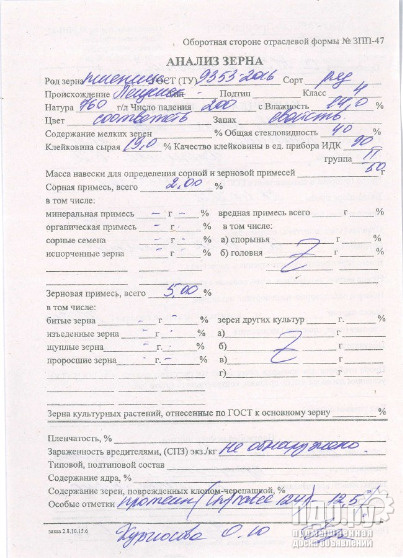 Оборотная стороне отраслевой формы № ЗПП-47
АНАЛИЗ ЗЕРНА
Род зерна пшеница ГОСТ (ТУ) 9353-2016 Сорт ряд
Происхождение Подтип Класс 4
Натура 760 г/л Число падения 200 с Влажность 14,0 %
Цвет соответств Запах свойств.
Содержание мелких зерен % Общая стекловидность 40 %
Клейковина сырая 19,0 % Качество клейковины в ед. прибора ИДК 90
группа II
Масса навески для определения сорной и зерновой примесей 50 г
Сорная примесь, всего 2.00 %
в том числе:
минеральная примесь – г – % вредная примесь всего г %
органическая примесь – г – % в том числе:
сорные семена – г – % а) спорынья г %
испорченные зерна – г – % б) головня г %
г % г %
Зерновая примесь, всего 5.00 %
в том числе:
битые зерна – г – % зерен других культур г %
изъеденные зерна – г – % а) г %
щуплые зерна – г – % б) г %
проросшие зерна – г – % в) г %
г) г %
Зерна культурных растений, отнесенные по ГОСТ к основному зерну %
Пленчатость, %
Зараженность вредителями, (СПЗ) экз./кг не обнаружено.
Типовой, подтиповой состав
Содержание ядра, %
Содержание зерен, поврежденных клопом-черепашкой, %
Особые отметки протеин 12,5%
заказ 2.8.10.15.6
О. Ю
ПДОТУ